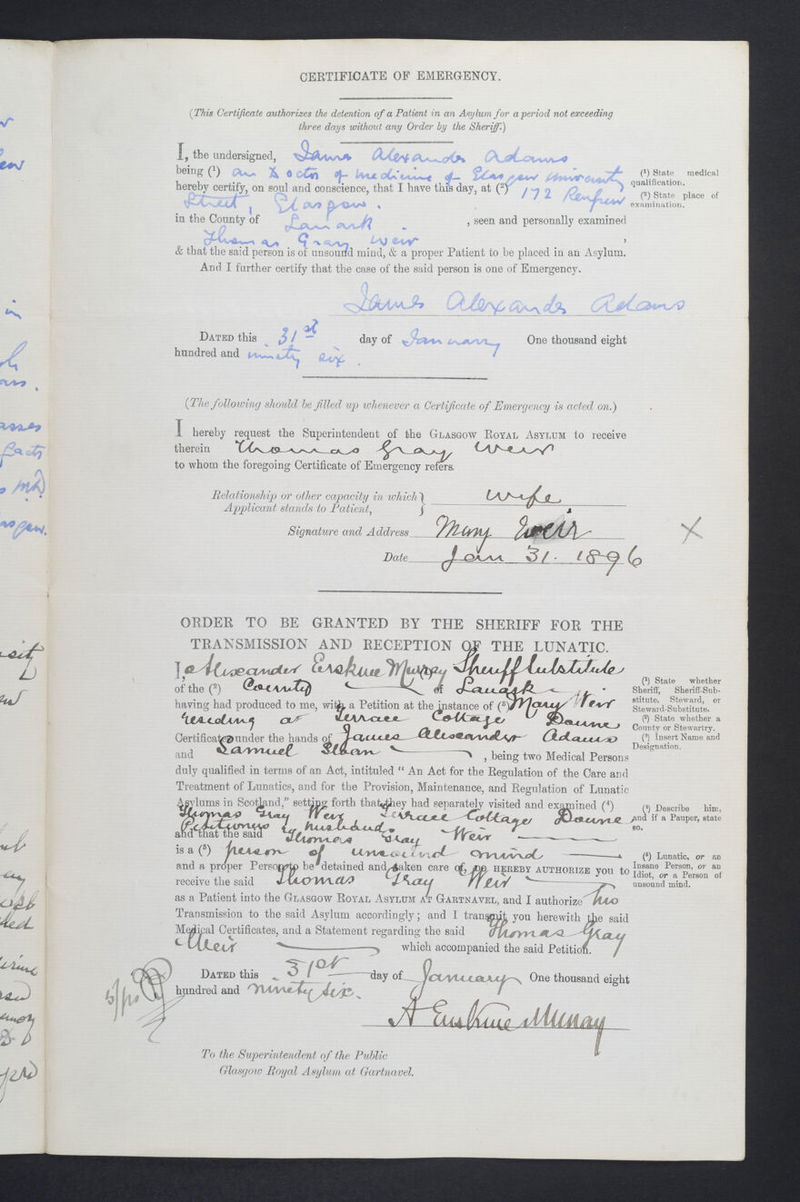 CERTIFICATE OF EMERGENCY.
(This Certificate authorizes the detention of a Patient in an Asylum for a period not exceeding
three days without any Order by the Sheriff.)
I, the undersigned, James Alexander Adams
being (1) an Doctor of medicine of Glasgow University
hereby certify, on soul and conscience, that I have this day, at (2) 172 Renfrew
Street, Glasgow.
in the County of Lanark, seen and personally examined
Thomas Gray Weir,
& that the said person is of unsound mind, & a proper Patient to be placed in an Asylum.
And I further certify that the case of the said person is one of Emergency.
(1) State medical
qualification.
(2) State place of
examination.
James Alexander Adams
DATED this 31st day of January One thousand eight
hundred and ninety six.
(The following should be filled up whenever a Certificate of Emergency is acted on.)
I hereby request the Superintendent of the GLASGOW ROYAL ASYLUM to receive
therein Thomas Gray Weir
to whom the foregoing Certificate of Emergency refers.
Relationship or other capacity in which
Applicant stands to Patient, } wife
Signature and Address Mary Weir X
Date Jan 31. 1896
ORDER TO BE GRANTED BY THE SHERIFF FOR THE
TRANSMISSION AND RECEPTION OF THE LUNATIC.
I, Alexander Erskine Murray Sheriff Substitute
of the (2) County of Lanark
having had produced to me, with a Petition at the instance of (3) Mary Weir
residing at Terrace Cottage Doune
Certificates under the hands of James Alexander Adams
and Samuel Sloan, being two Medical Persons
duly qualified in terms of an Act, intituled "An Act for the Regulation of the Care and
Treatment of Lunatics, and for the Provision, Maintenance, and Regulation of Lunatic
Asylums in Scotland," setting forth that they had separately visited and examined (4)
Thomas Gray Weir Terrace Cottage Doune
Petitioners husband
and that the said Thomas Gray Weir
is a (5) person of unsound mind
and a proper Person to be detained and taken care of, DO HEREBY AUTHORIZE you to
receive the said Thomas Gray Weir
as a Patient into the GLASGOW ROYAL ASYLUM AT GARTNAVEL, and I authorize his
Transmission to the said Asylum accordingly; and I transmit you herewith the said
Medical Certificates, and a Statement regarding the said Thomas Gray
Weir which accompanied the said Petition.
(1) State whether
Sheriff, Sheriff-Sub-
stitute, Steward, or
Steward-Substitute.
(2) State whether a
County or Stewartry.
(3) Insert Name and
Designation.
(4) Describe him,
and if a Pauper, state
so.
(5) Lunatic, or an
Insane Person, or an
Idiot, or a Person of
unsound mind.
DATED this 31st day of January One thousand eight
hundred and ninety six.
A Erskine Murray
To the Superintendent of the Public
Glasgow Royal Asylum at Gartnavel.